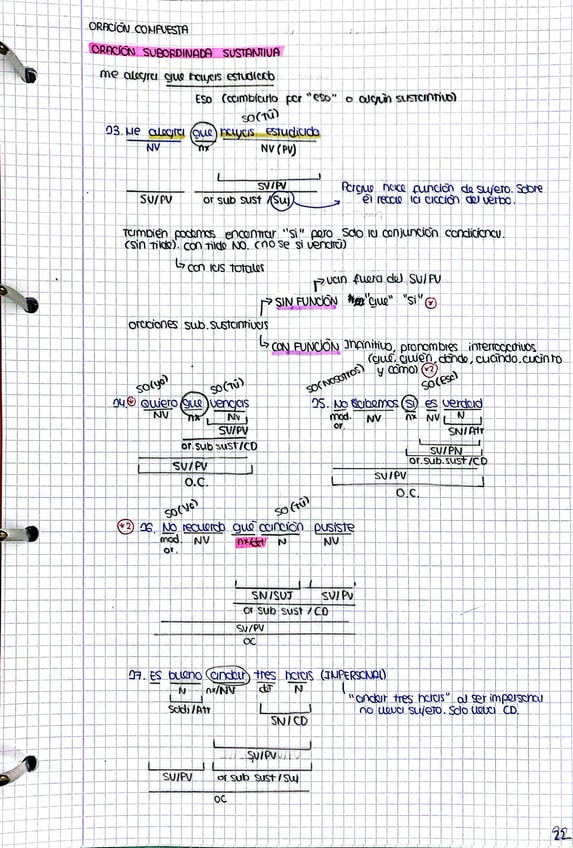 ORACIÓN COMPUESTA
ORACIÓN SUBORDINADA SUSTANTIVA
me alegra que hayas estudiado
ESO (cambiarlo por "eso" o algún sustantivo)
SO(TÚ)
23. Me alegra que hayas estudiado
NV nx NV (PV)
SV/PV
SV/PV or sub sust /Suj
Porque hace función de sujeto. Sobre
él recae la acción del verbo.
También podemos encontrar "si" pero solo la conjunción condicional.
(sin tilde). con tilde NO. (no se si vendrá)
con las totales
van fuera del SV/PV
SIN FUNCIÓN "que" "si"
oraciones sub. sustantivas
CON FUNCIÓN Infinitivo, pronombres interrogativos
(qué, quién, dónde, cuándo, cuánto
y cómo) *2
SO(yo) SO(TÚ)
24. * Quiero que vengas
NV nx NV
SV/PV
or. sub sust/CD
SV/PV
O.C.
SO(NOSOTROS) SO(Eso)
25. No sabemos si es verdad
mod. NV nx NV N
or. SN/Atr
SV/PN
or. sub. sust/CD
SV/PV
O.C.
SO(Yo) SO(TÚ)
*2 26. No recuerdo qué canción pusiste
mod. NV nx/dt N NV
or.
SN/SUJ SV/PV
or sub sust / CD
SV/PV
OC
27. Es bueno andar tres horas (IMPERSONAL)
N nx/NV dt N
Sadj/Atr
SN/CD
"andar tres horas" al ser impersonal
no lleva sujeto. Solo lleva CD.
SV/PV
SV/PV or sub sust/Suj
OC
22